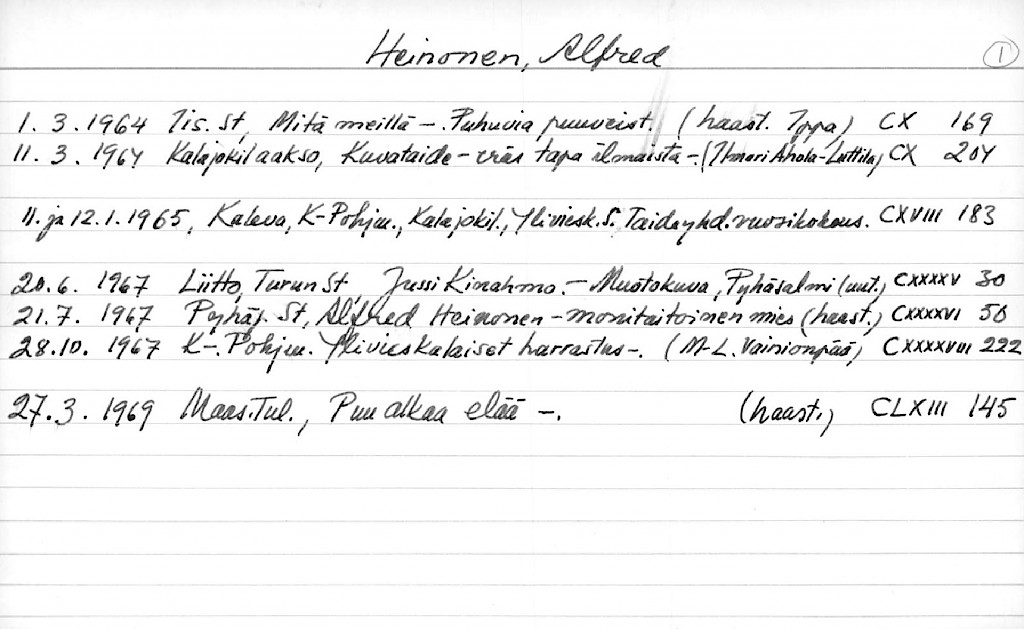 Heinonen, Alfred 1
1. 3. 1964 Iis. St, Mitä meillä -. Puhuvia puuveist. (haast. Ippa) CX 169
11. 3. 1964 Kalajokilaakso, Kuvataide - eräs tapa ilmaista -. (Ilmari Ahola-Luttila) CX 204
11. ja 12. 1. 1965, Kaleva, K-Pohjm., Kalajokil., Yliviesk. S. Taideyhd. vuosikokous. CXVIII 183
20. 6. 1967 Liitto, Turun St, Jussi Kinahmo. - Muotokuva, Pyhäsalmi (uut.) CXXXXV 30
21. 7. 1967 Pyhäj. St, Alfred Heinonen - monitaitoinen mies (haast.) CXXXXVI 56
28. 10. 1967 K-. Pohjm. Ylivieskalaiset harrastus -. (M-L. Vainionpää) CXXXXVIII 222
27. 3. 1969 Maas. Tul., Puu alkaa elää -. (haast.) CLXIII 145